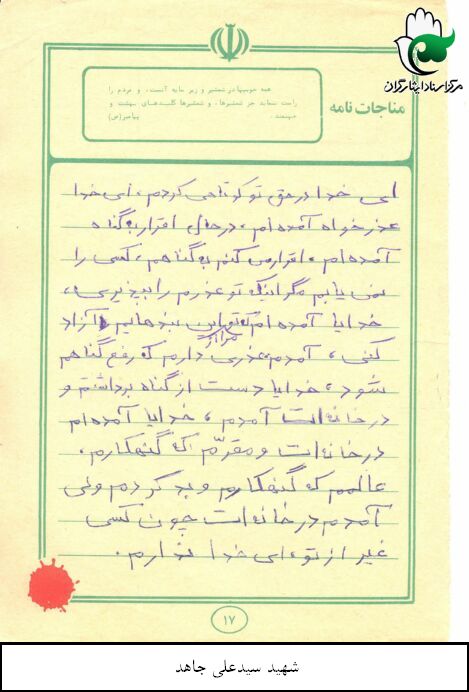 مرکز اسناد ایثارگران
مناجات نامه
همه خوبیها در شمشیر و زیر سایه آنست، و مردم را
راست ننماید جز شمشیرها، و شمشیرها کلیدهای بهشت و
جهنمند.
پیامبر(ص)
ای خدا در حق تو کوتاهی کردم، ای خدا
عذر خواه آمده‌ام، در حال اقرار به گناه
آمده‌ام، اقرار می کنم به گناهم، کسی را
نمی یابم مگر اینکه تو عذرم را بپذیری،
خدایا آمده‌ام که مرا از این آزاد
کنی، آمدم عذری دارم که رفع گناهم
شود، خدایا دست از گناه برداشتم و
در خانه‌ات آمدم، خدایا آمده‌ام
در خانه‌ات و مقرّم که گنهکارم.
عالمم که گنهکارم و بد کردم ولی
آمدم در خانه‌ات چون کسی
غیر از تو، ای خدا ندارم.
۱۷
شهید سیدعلی جاهد